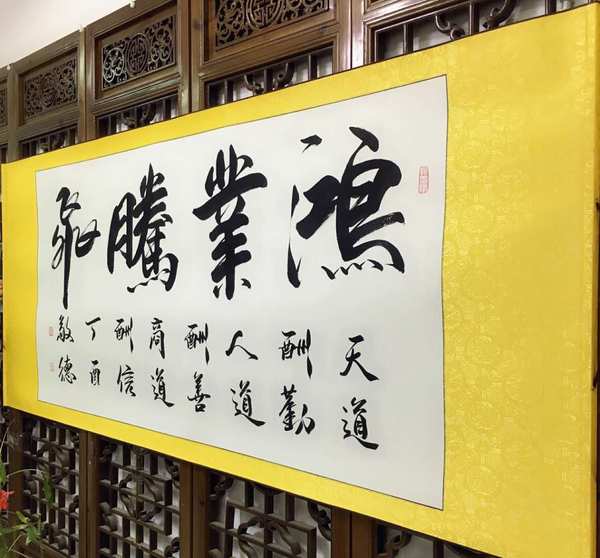 鴻業騰飛
天道
酬勤
人道
酬善
商道
酬信
丁酉
敏德